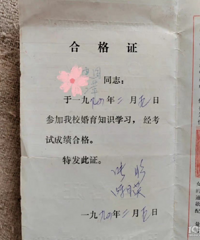 合格证
同志：
于一九九〇年二月 日
参加我校婚育知识学习，经考
试成绩合格。
特发此证。
一九九〇年二月 日